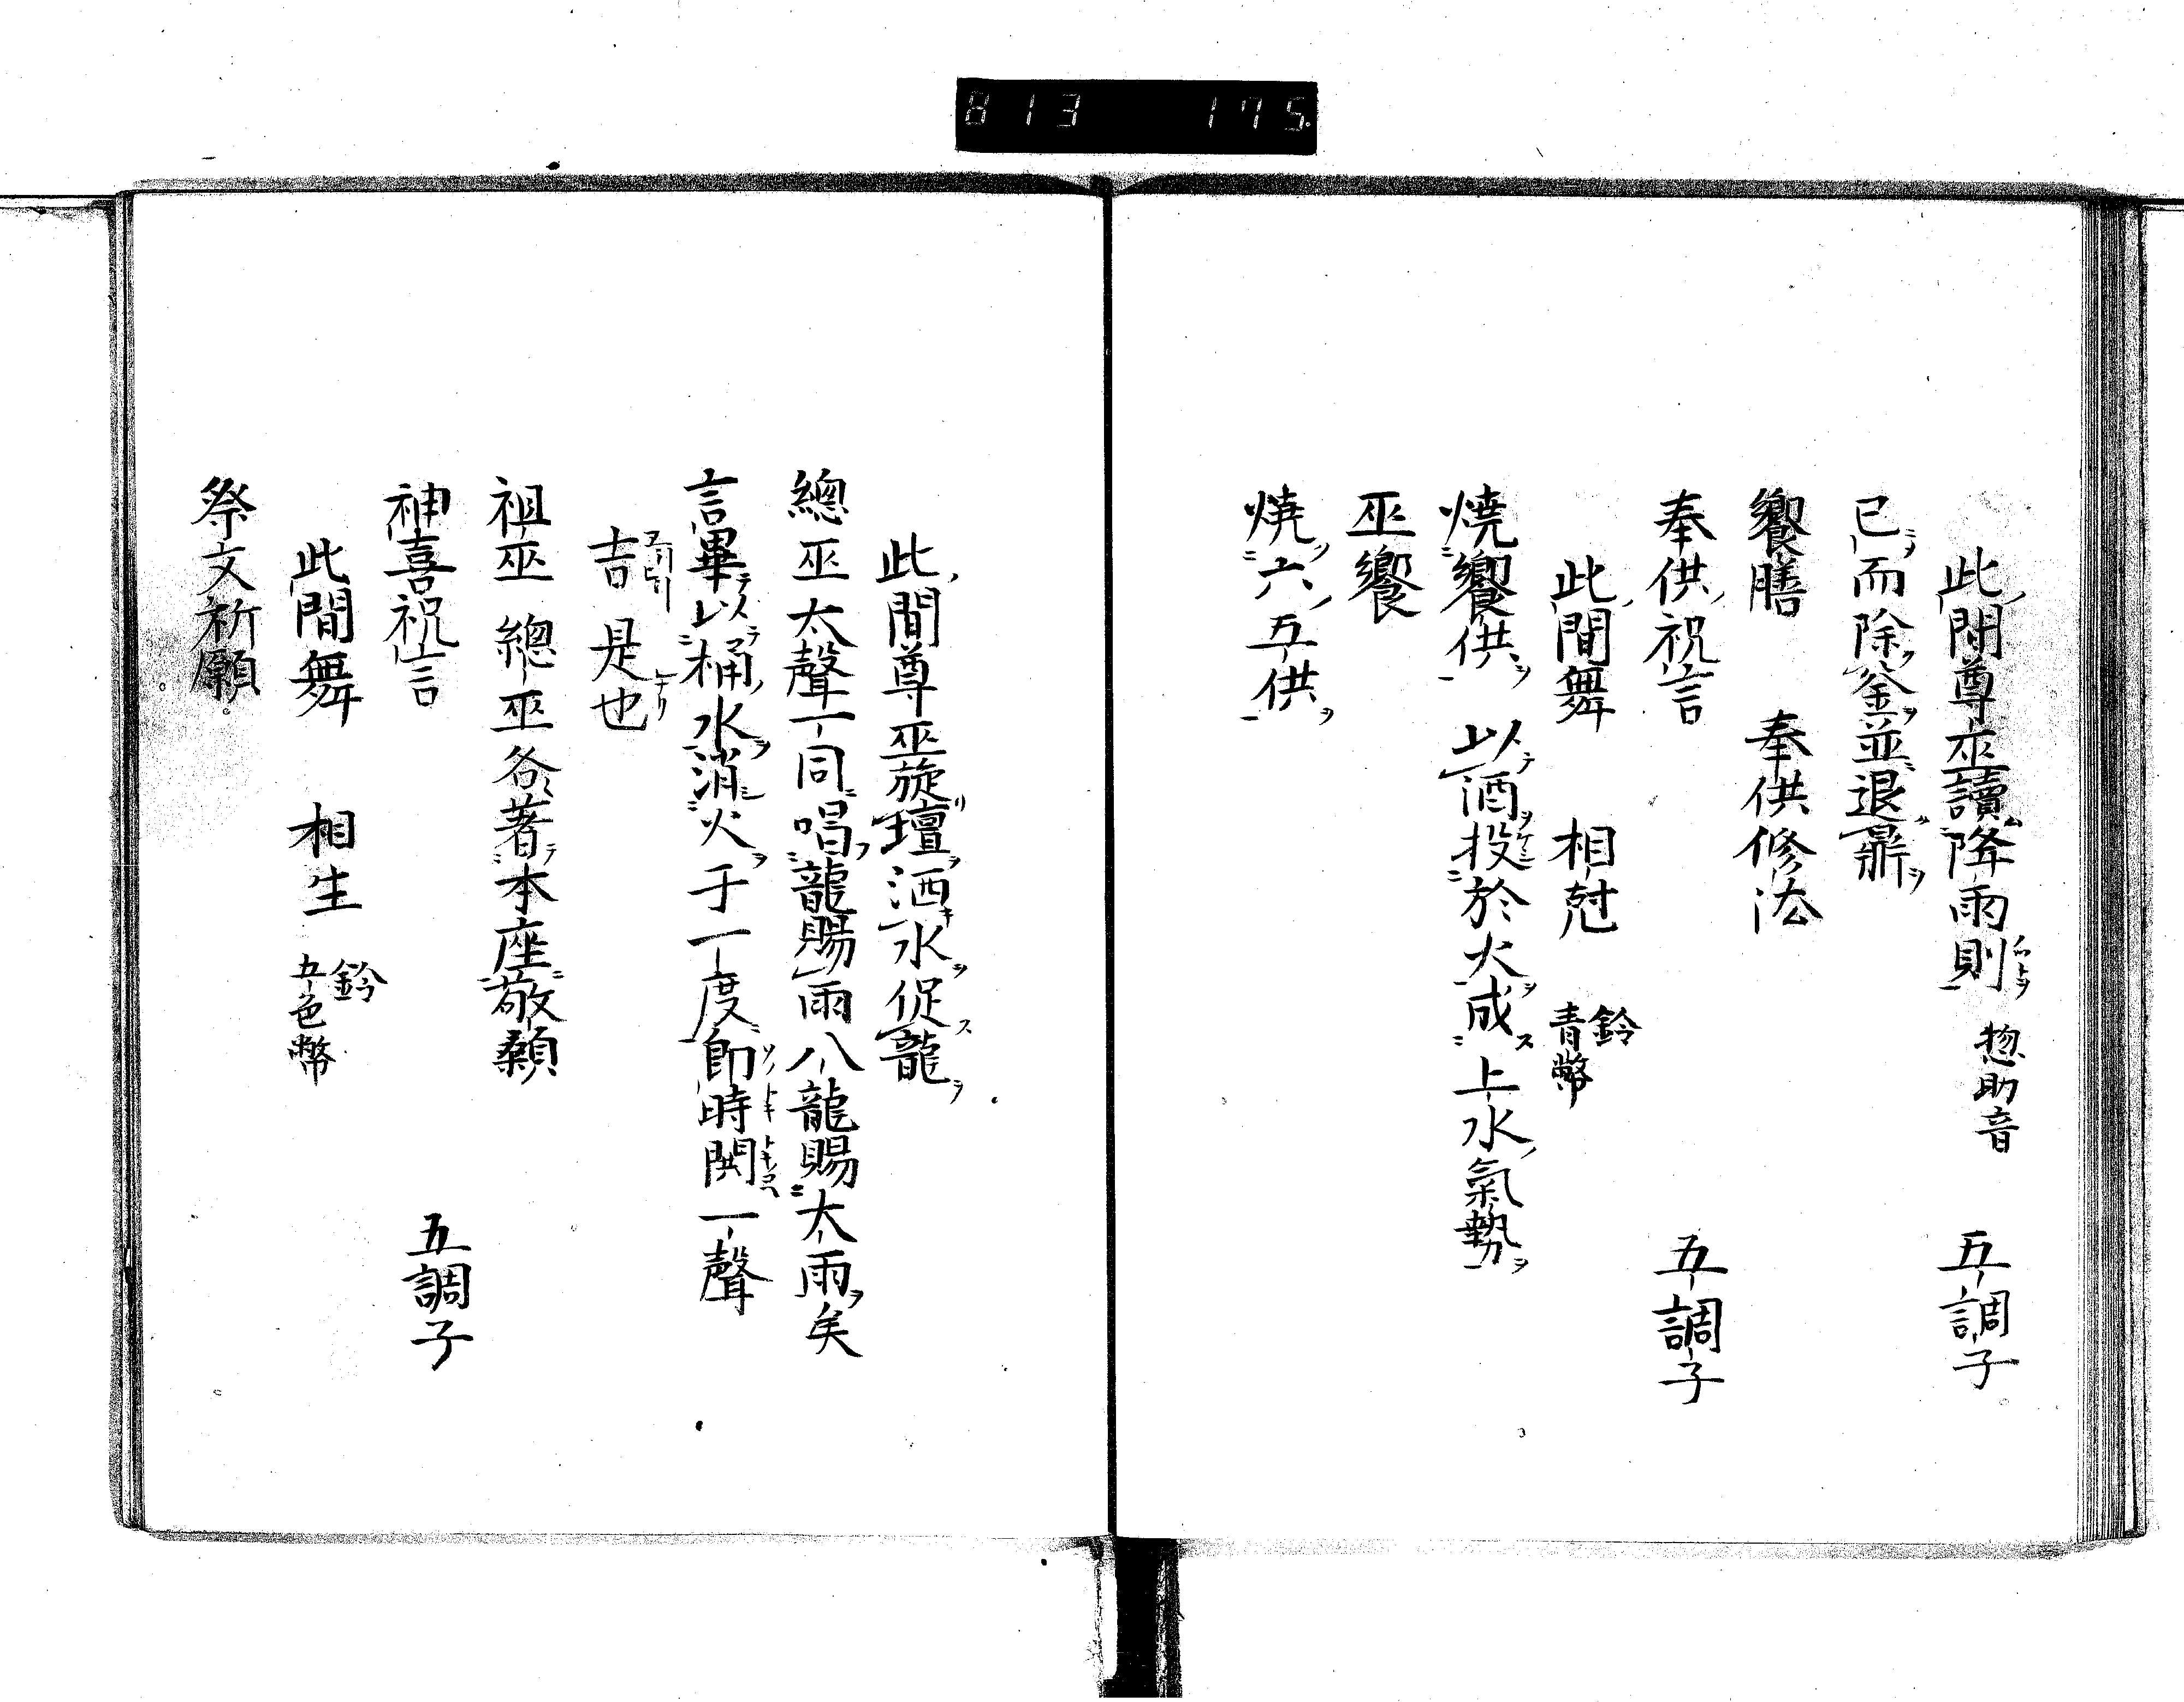 813 175.
此間尊巫讀降雨則 惣助音 五調子
已而除釜並退鼎
饗膳 奉供修法
奉供祝言 五調子
此間舞 相尅 鈴 青幣
燒饗供 以酒投於火成上水氣勢
巫饗
燒六五供
此間尊巫旋壇洒水促龍
總巫太聲一同唱龍賜雨八龍賜太雨矣
言畢以桶水消火于一度即時閧一聲
吉是也
祖巫 總巫各著本座敬顙
神喜祝言 五調子
此間舞 相生 鈴 五色幣
祭文祈願